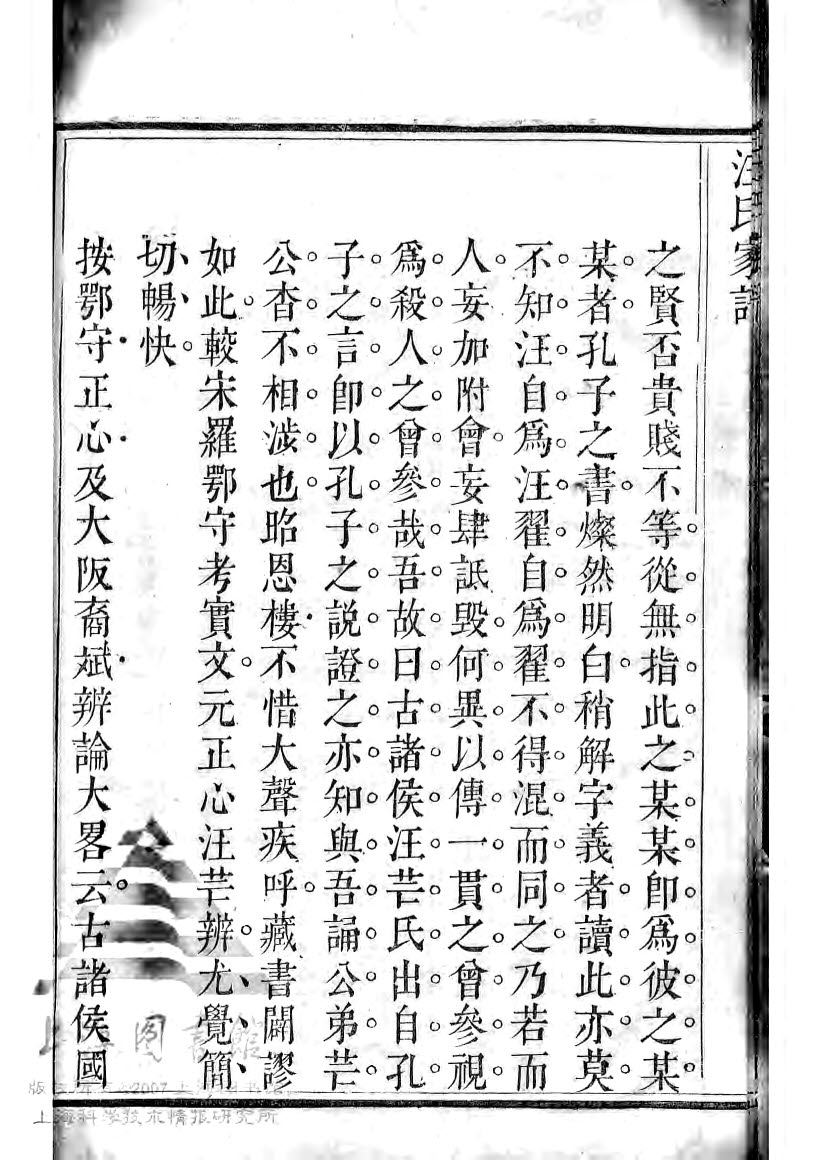 汪氏家譜
之賢否貴賤不等從無指此之某某卽爲彼之某
某者孔子之書燦然明白稍解字義者讀此亦莫
不知汪自爲汪翟自爲翟不得混而同之乃若而
人妄加附會妄肆詆毀何異以傳一貫之曾參視
爲殺人之曾參哉吾故曰古諸侯汪芒氏出自孔
子之言卽以孔子之說證之亦知與吾誦公弟芒
公杳不相涉也昭恩樓不惜大聲疾呼藏書闢謬
如此較宋羅鄂守考實文元正心汪芒辨尤覺簡
切暢快
按鄂守正心及大阪裔斌辨論大畧云古諸侯國
上海科学技术情报研究所